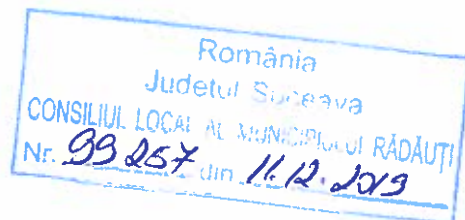 România
Judetul Suceava
CONSILIUL LOCAL AL MUNICIPIULUI RĂDĂUȚI
Nr. 99 257 din 11.12.2019